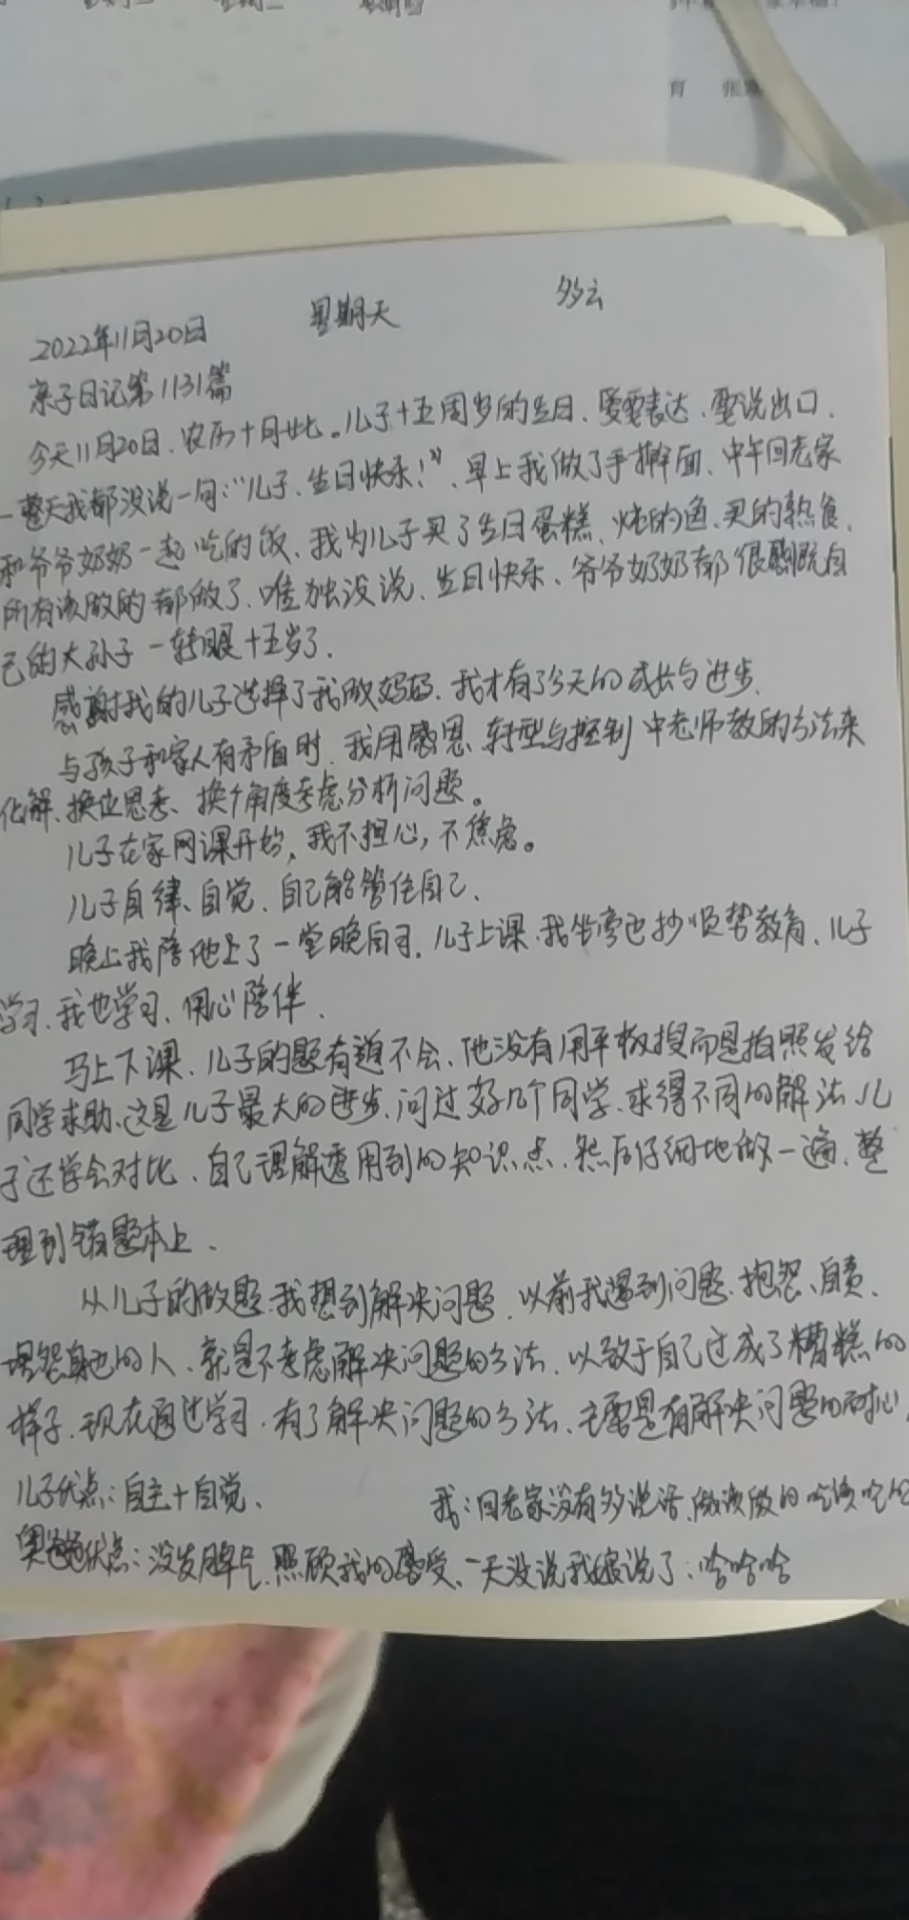 育 张
2022年11月20日 星期天 多云
亲子日记第1131篇
今天11月20日、农历十月廿七。儿子十五周岁的生日、要表达、要说出口、
一整天我都没说一句:“儿子、生日快乐!”、早上我做了手擀面、中午回老家
和爷爷奶奶一起吃的饭、我为儿子买了生日蛋糕、炖的鱼、买的熟食、
所有该做的都做了、唯独没说、生日快乐、爷爷奶奶都很感慨自
己的大孙子一转眼十五岁了、
感谢我的儿子选择了我做妈妈、我才有了今天的成长与进步、
与孩子和家人有矛盾时、我用感恩、转型与控制中老师教的方法来
化解、换位思考、换个角度考虑分析问题。
儿子在家网课开始,我不担心,不焦虑。
儿子自律、自觉、自己能管住自己、
晚上我陪他上了一堂晚自习、儿子上课、我坐旁边抄贤帮教育、儿子
学习、我也学习、用心陪伴、
马上下课、儿子的题有道不会、他没有用平板搜而是拍照发给
同学求助、这是儿子最大的进步、问过好几个同学、求得不同的解法、儿
子还学会对比、自己理解透用到的知识点、然后仔细地做一遍、整
理到错题本上、
从儿子的做题、我想到解决问题、以前我遇到问题、抱怨、自责、
埋怨身边的人、就是不考虑解决问题的方法、以致于自己过成了糟糕的
样子、现在通过学习、有了解决问题的方法、主要是有解决问题的耐心、
儿子优点:自主+自觉、 我:回老家没有多说话、做该做的吃该吃的
爸爸优点:没发脾气、照顾我的感受、一天没说我 说了:哈哈哈